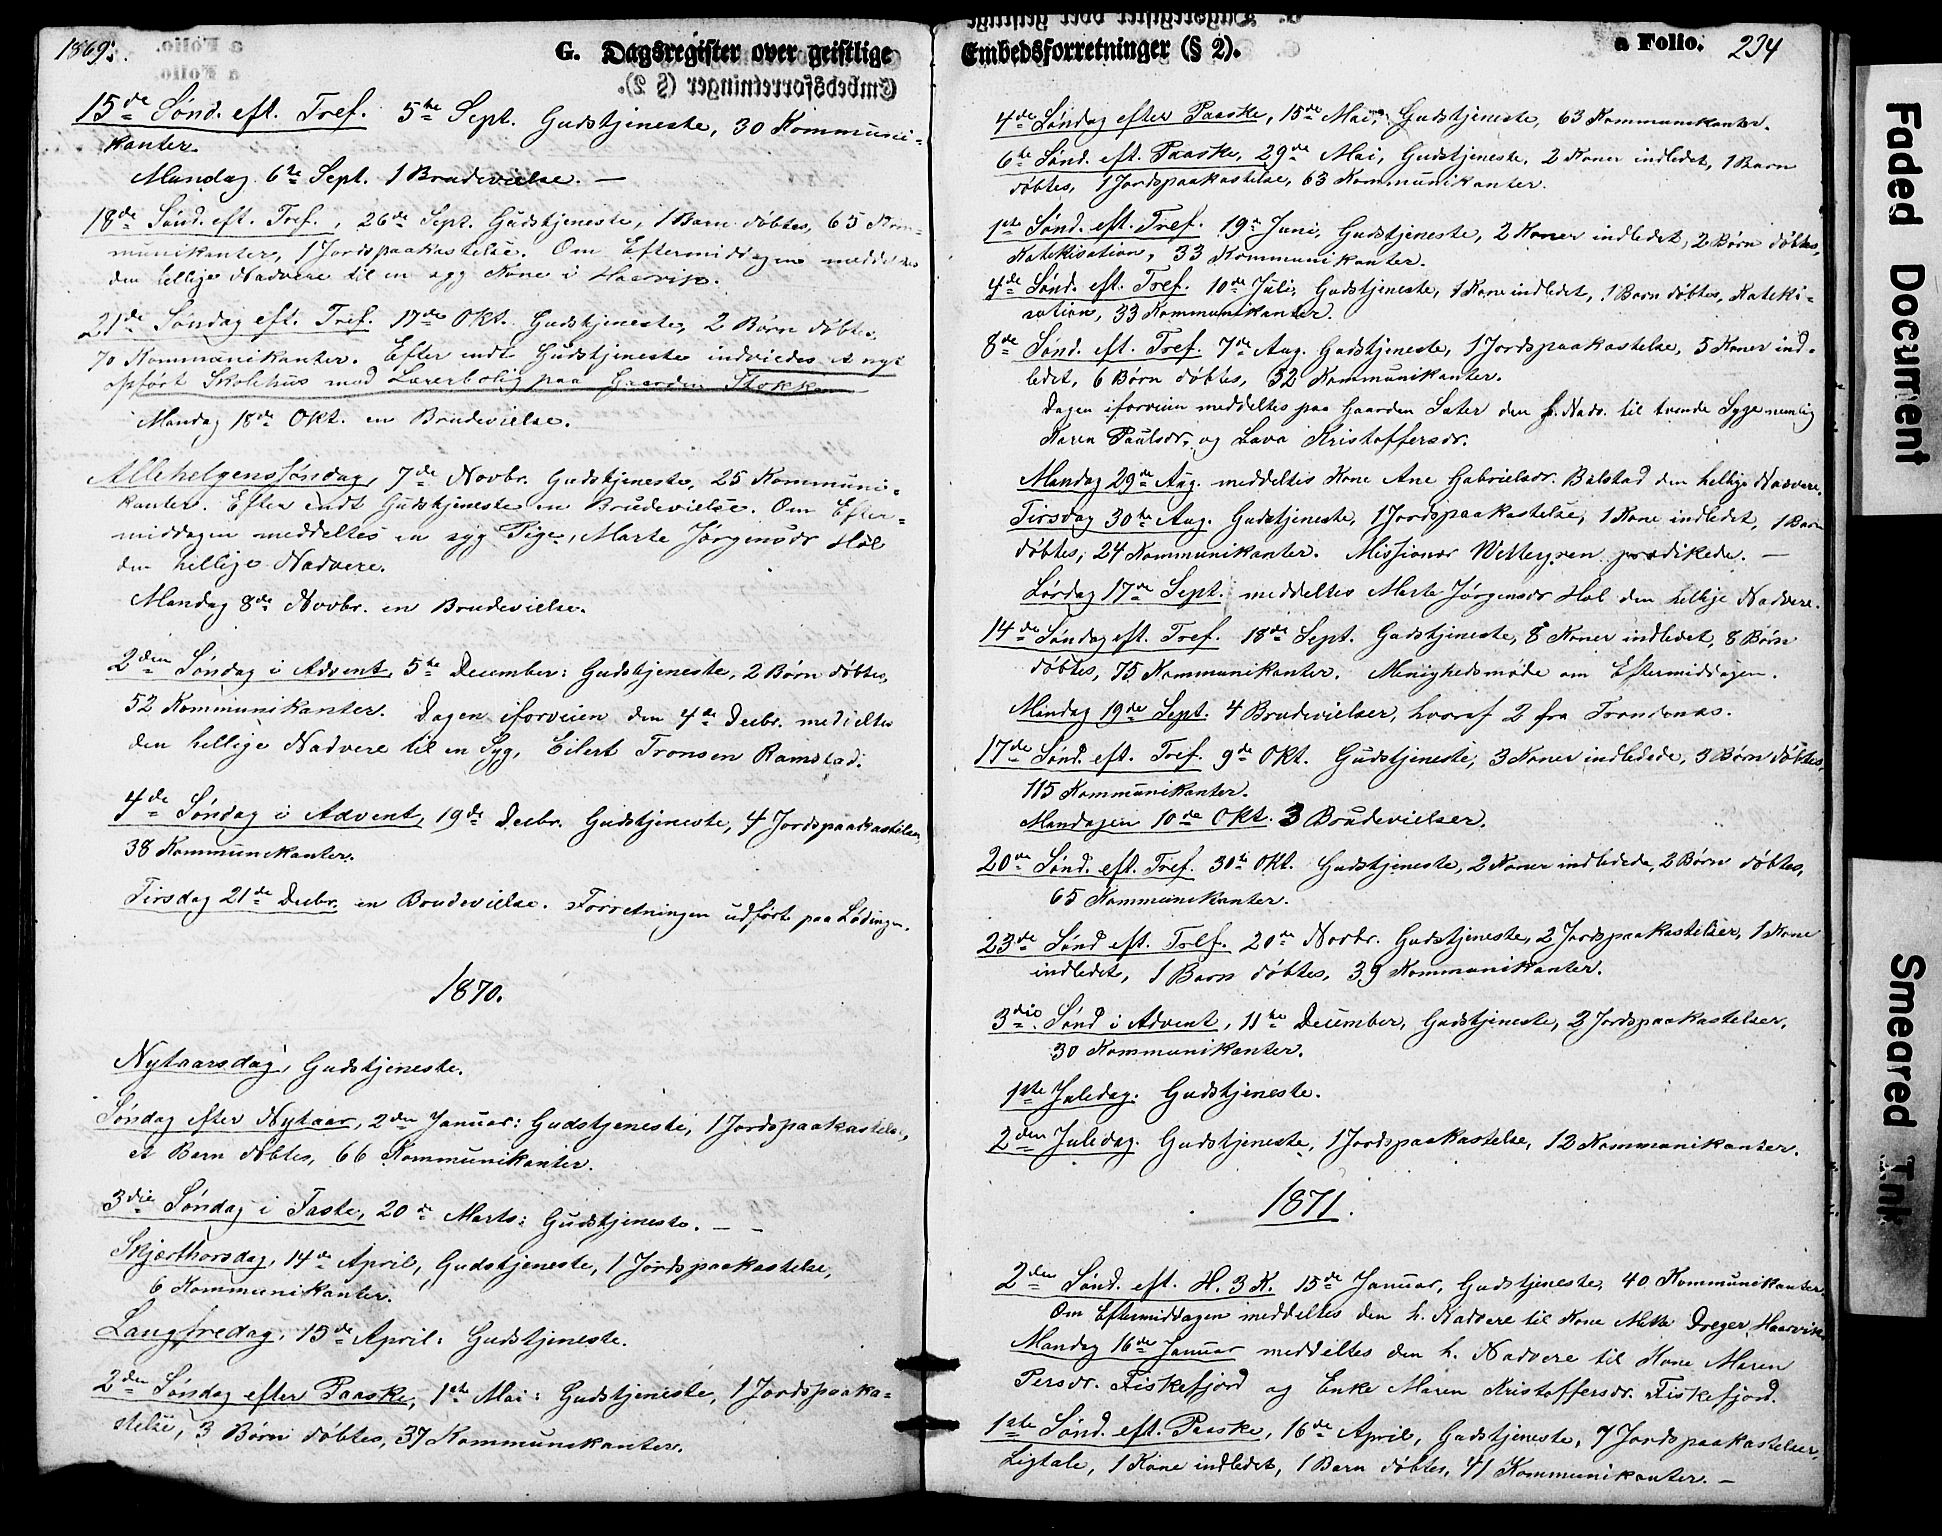 1869.
G. Dagsregister over geistlige
15de Sønd. eft. Tref. 5te Sept. Gudstjeneste, 30 Kommuni-
kanter.
Mandag 6te Sept. 1 Brudevielse. —
18de Sønd. eft. Tref., 26de Sept. Gudstjeneste, 1 Barn døbtes, 65 Kom-
munikanter, 1 Jordspaakastelse. Om Eftermiddagen meddeltes
den hellige Nadvere til en syg Kone i Haarvik.
21de Søndag eft. Tref. 17de Okt. Gudstjeneste, 2 Børn døbtes,
70 Kommunikanter. Efter endt Gudstjeneste indviedes et nyt
opført Skolehus med Lærerbolig paa Gaarden Stokke
Mandag 18de Okt. en Brudevielse.
Allehelgenssøndag, 7de Novbr. Gudstjeneste, 25 Kommuni-
kanter. Efter endt Gudstjeneste en Brudevielse. Om Efter-
middagen meddeltes en syg Pige, Marte Jørgensdr Hol
den hellige Nadvere.
Mandag 8de Novbr. en Brudevielse.
2den Søndag i Advent, 5te December: Gudstjeneste, 2 Børn døbtes,
52 Kommunikanter. Dagen iforveien den 4de Decbr. meddeltes
den hellige Nadvere til en Syg, Eilert Tronsen Ramstad.
4de Søndag i Advent, 19de Decbr. Gudstjeneste, 4 Jordspaakastelser,
38 Kommunikanter.
Tirsdag 21de Decbr. en Brudevielse. Forretningen udført paa Lødingen.
1870.
Nytaarsdag, Gudstjeneste.
Søndag efter Nytaar, 2den Januar: Gudstjeneste, 1 Jordspaakastelse,
et Barn døbtes, 66 Kommunikanter.
3die Søndag i Faste, 20de Marts: Gudstjeneste. — —
Skjærthorsdag, 14de April, Gudstjeneste, 1 Jordspaakastelse,
6 Kommunikanter.
Langfredag, 15de April: Gudstjeneste.
2den Søndag efter Paaske, 1ste Mai: Gudstjeneste, 1 Jordspaaka-
stelse, 3 Børn døbtes, 37 Kommunikanter.
Embedsforretninger (§ 2).
a Folio. 234
4de Søndag efter Paaske, 15de Mai, Gudstjeneste, 63 Kommunikanter.
6te Sønd. eft. Paaske, 29de Mai, Gudstjeneste, 2 Koner indledet, 1 Barn
døbtes, 1 Jordspaakastelse, 63 Kommunikanter.
1ste Sønd. eft. Tref. 19de Juni, Gudstjeneste, 2 Koner indledet, 2 Børn døbtes,
Katekisation, 33 Kommunikanter.
4de Sønd. eft. Tref. 10de Juli, Gudstjeneste, 1 Kone indledet, 1 Barn døbtes, Kateki-
sation, 33 Kommunikanter.
8de Sønd. eft. Tref. 7de Aug. Gudstjeneste, 1 Jordspaakastelse, 5 Koner ind-
ledet, 6 Børn døbtes, 32 Kommunikanter.
Dagen iforveien meddeltes paa Gaarden Sæter den h. Nadv. til tvende Syge nemlig
Karen Paulsdr. og Lava Kristoffersdr.
Mandag 29de Aug. meddeltes Kone Ane Gabrielsdr. Balstad den hellige Nadvere.
Tirsdag 30te Aug. Gudstjeneste, 1 Jordspaakastelse, 1 Kone indledet, 1 Barn
døbtes, 24 Kommunikanter. Missionær Wettergren prædikede. —
Lørdag 17de Sept. meddeltes Marte Jørgensdr Hol den hellige Nadvere.
14de Søndag eft. Tref. 18de Sept. Gudstjeneste, 8 Koner indledet, 8 Børn
døbtes, 75 Kommunikanter. Menighedsmøde om Eftermiddagen.
Mandag 19de Sept. 4 Brudevielser, hvoraf 2 fra Trondenæs.
17de Sønd. eft. Tref. 9de Okt. Gudstjeneste, 3 Koner indledede, 3 Børn døbtes,
115 Kommunikanter.
Mandagen 10de Okt. 3 Brudevielser.
20de Sønd. eft. Tref. 30te Okt. Gudstjeneste, 2 Koner indledede, 2 Børn døbtes,
65 Kommunikanter.
23de Sønd eft. Tref. 20de Novbr. Gudstjeneste, 2 Jordspaakastelser, 1 Kone
indledet, 1 Barn døbtes, 39 Kommunikanter.
3die Sønd i Advent, 11te December, Gudstjeneste, 2 Jordspaakastelser,
30 Kommunikanter.
1ste Juledag. Gudstjeneste.
2den Juledag. Gudstjeneste, 1 Jordspaakastelse, 12 Kommunikanter.
1871.
2den Sønd. eft. H. 3 K. 15de Januar, Gudstjeneste, 40 Kommunikanter.
Om Eftermiddagen meddeltes den h. Nadvere til Kone Mette Dreyer, Haarvik.
Mandag 16de Januar meddeltes den h. Nadvere til Kone Maren
Persdr. Fiskefjord og Enke Maren Kristoffersdr. Fiskefjord.
1ste Sønd. eft. Paaske, 16de April, Gudstjeneste, 7 Jordspaakastelser,
Ligtale, 1 Kone indledet, 1 Barn døbtes, 41 Kommunikanter. —
Faded Document
Smeared Ink